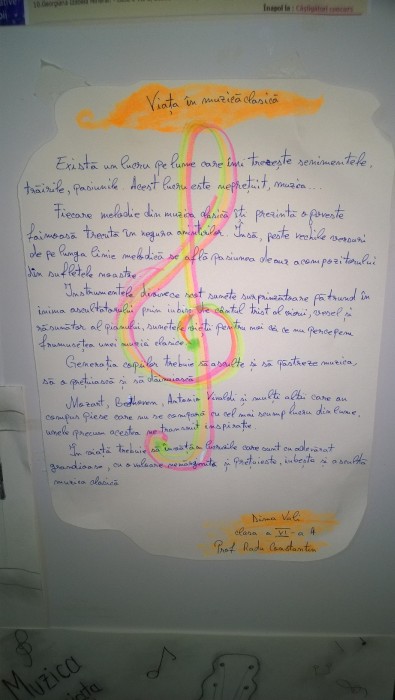 Înapoi la : Câștigători concurs
Viața în muzică clasică
Există un lucru pe lume care îmi trezește senimentele,
trăirile, pasiunile. Acest lucru este neprețuit, muzica...
Fiecare melodie din muzica clasică îți prezintă o poveste
faimoasă trecută în negura amintirilor. Însă, peste vechile versuri
de pe lunga linie melodică se află pasiunea de aur a compozitorului
din sufletele noastre.
Instrumentele deoarece scot sunete surprinzătoare pătrund în
inima ascultătorului prin iubire de cântul trist al viorii, vesel și
răsunător al pianului, sunetele vieții pentru mai că ce nu percepem
frumusețea unei muzici clasice.
Generația copiilor trebuie să asculte și să păstreze muzica,
să o prețuiască și să dăinuiască.
Mozart, Bethoven, Antonio Vivaldi și mulți alții care au
compus piese care nu se compară cu cel mai scump lucru din lume,
unele precum acestea ne transmit inspirație.
În viață trebuie să învățăm lucrurile care sunt cu adevărat
grandioase, cu o valoare nemărginită și prețuiește, iubește și ascultă
muzica clasică.
clasa a VI-a A
Prof. Radu Constantin
Muzica